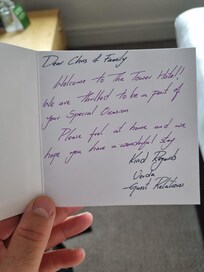 Dear Chris & Family
Welcome to The Tower Hotel!!
We are thrilled to be a part of
your Special Occasion
Please feel at home and we
hope you have a wonderful stay
Kind Regards
Guest Relations